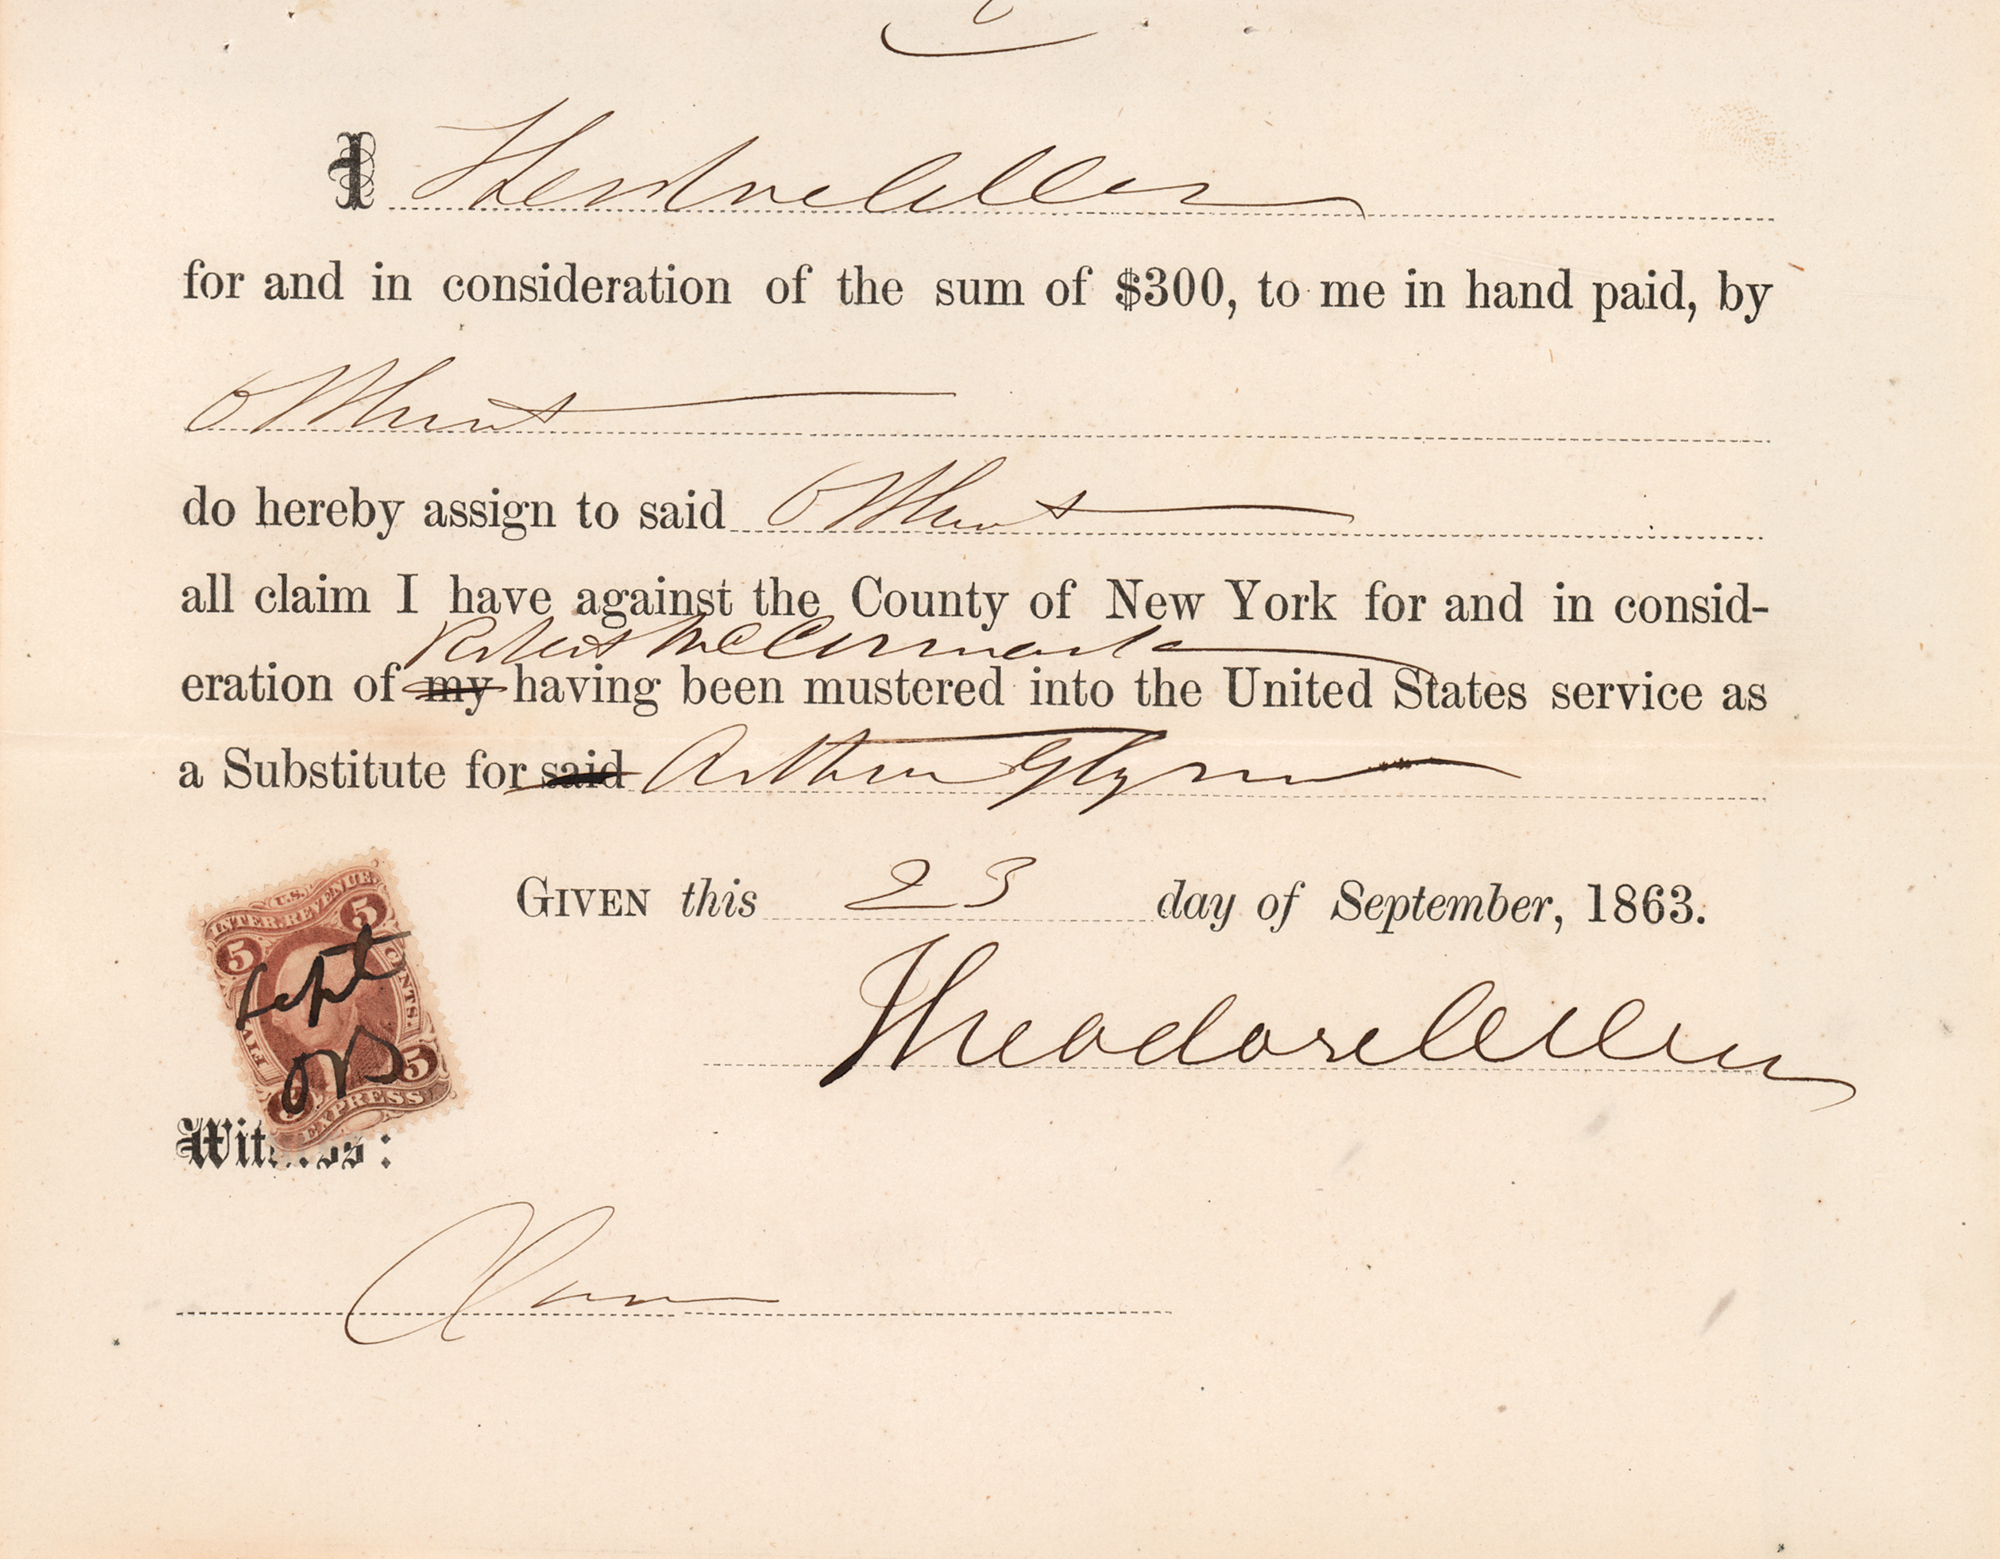 I Theodore Allen
for and in consideration of the sum of $300, to me in hand paid, by
do hereby assign to said
all claim I have against the County of New York for and in consid-
Robert McCormack
eration of my having been mustered into the United States service as
a Substitute for said Arthur Glynn
GIVEN this 23 day of September, 1863.
Theodore Allen
U.S.
INTER. REVENUE
5 5
FIVE CENTS.
Sept
5 5
EXPRESS
Witness: